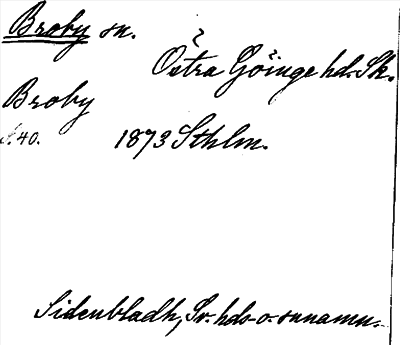 Broby sn.
Östra Göinge hd. Sk.
Broby
s. 40. 1873 Sthlm.
Sidenbladh, Sv. hds- o. snnamn.